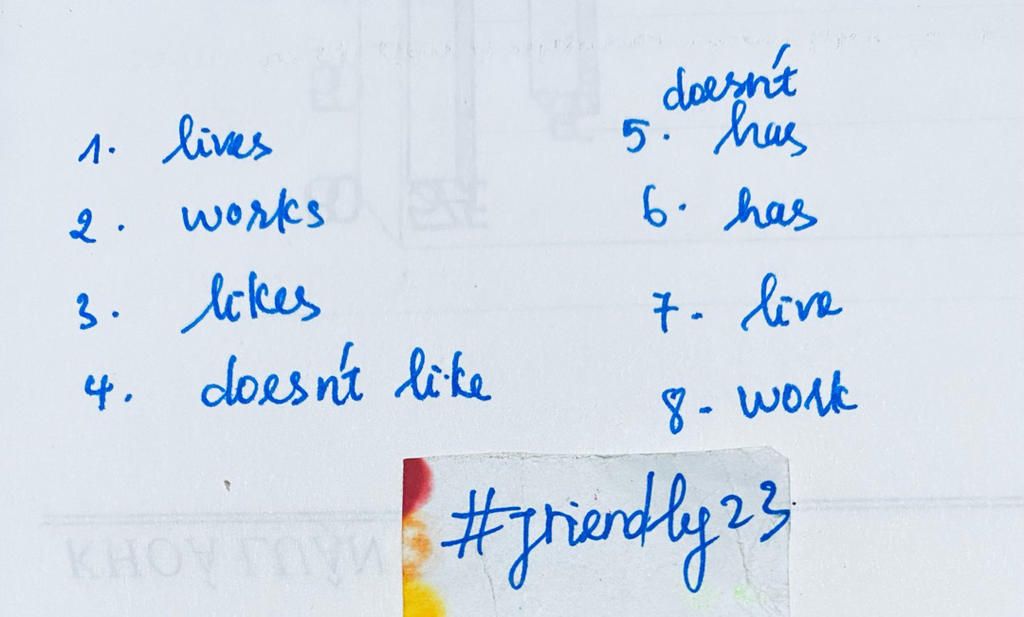 1. lives
2. works
3. likes
4. doesn't like
doesn't
5. has
6. has
7. live
8. work
#friendly23
KHOÁ LUẬN